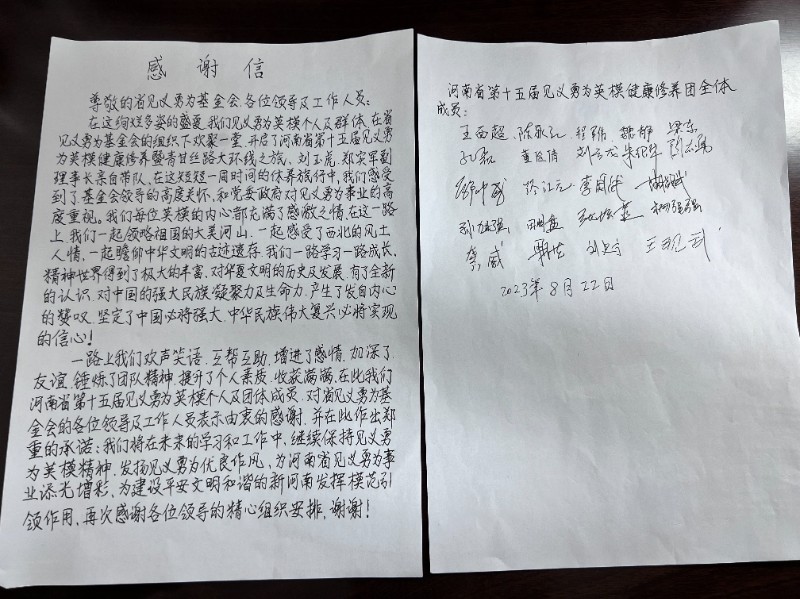 感谢信
尊敬的省见义勇为基金会、各位领导及工作人员：
在这绚烂多姿的盛夏,我们见义勇为英模个人及群体,在省
见义勇为基金会的组织下欢聚一堂,开启了河南省第十五届见义勇
为英模健康修养暨青甘丝路大环线之旅,刘玉虎、郑实军副
理事长亲自带队,在这短短一周时间的休养旅行中,我们感受
到了基金会领导的高度关怀、和党委政府对见义勇为事业的高
度重视。我们每位英模的内心都充满了感激之情,在这一路
上,我们一起领略祖国的大美河山、一起感受了西北的风土
人情、一起瞻仰中华文明的古迹遗存。我们一路学习一路成长,
精神世界得到了极大的丰富、对华夏文明的历史及发展,有了全新
的认识、对中国的强大民族凝聚力及生命力,产生了发自内心
的赞叹、坚定了中国必将强大、中华民族伟大复兴必将实现
的信心！
一路上我们欢声笑语、互帮互助、增进了感情、加深了
友谊、锤炼了团队精神、提升了个人素质、收获满满,在此我们
河南省第十五届见义勇为英模个人及团体成员、对省见义勇为基
金会的各位领导及工作人员表示由衷的感谢、并在此作出郑
重的承诺：我们将在未来的学习和工作中,继续保持见义勇
为英模精神、发扬见义勇为优良作风,为河南省见义勇为事
业添光增彩,为建设平安文明和谐的新河南发挥模范引
领作用、再次感谢各位领导的精心组织安排,谢谢！
河南省第十五届见义勇为英模健康修养团全体
成员：
王西超
刘云龙
李周伟
龚威 王现武
2023年8月22日